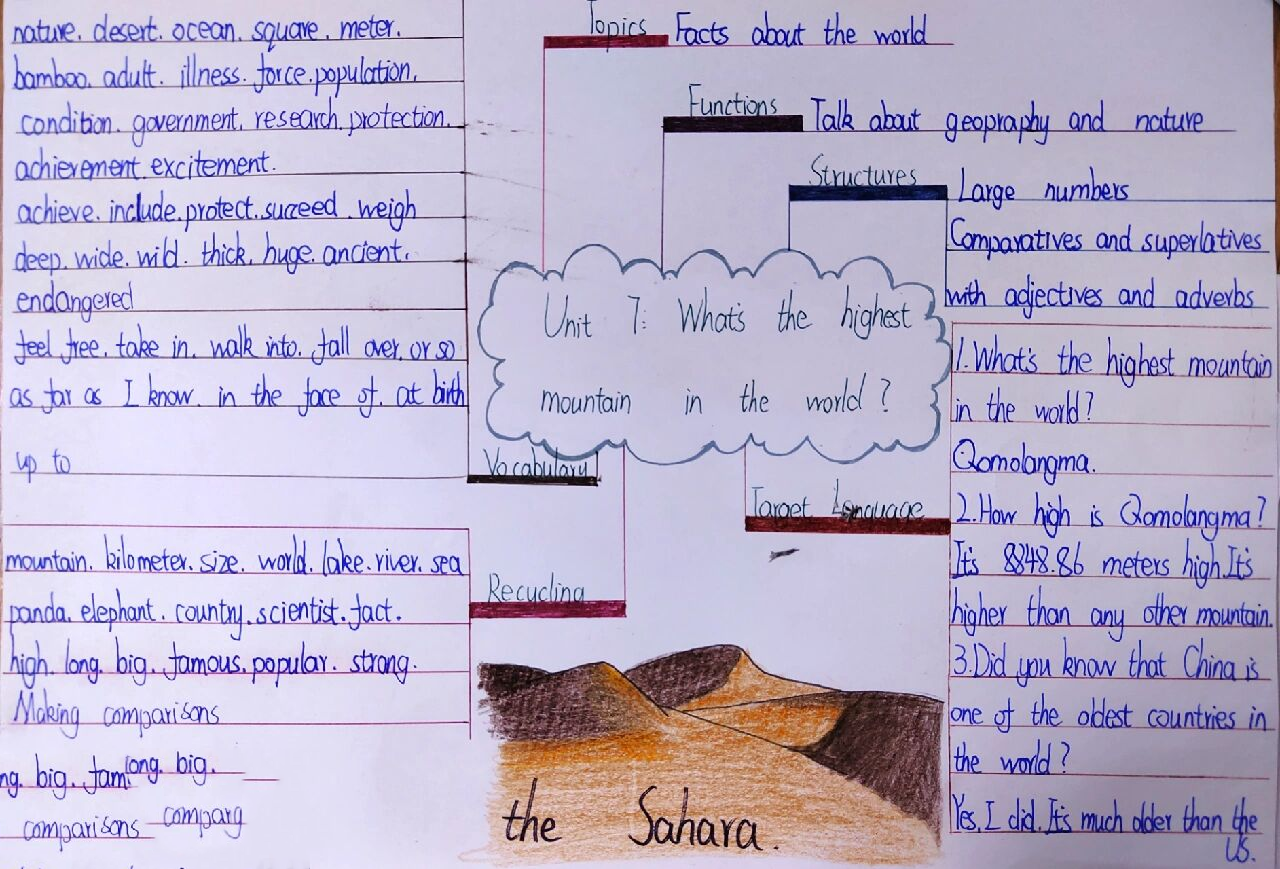 nature. desert. ocean. square. meter.
bamboo. adult. illness. force. population.
condition. government. research. protection.
achievement. excitement.
achieve. include. protect. succeed. weigh
deep. wide. wild. thick. huge. ancient.
endangered
feel free. take in. walk into. fall over. or so
as far as I know. in the face of. at birth
up to
Vocabulary
Topics
Facts about the world
Functions
Talk about geopraphy and nature
Structures
Large numbers
Comparatives and superlatives
with adjectives and adverbs
Unit 7: What's the highest
mountain in the world?
Target Language
1.What's the highest mountain
in the world?
Qomolangma.
2.How high is Qomolangma?
It's 8848.86 meters high.It's
higher than any other mountain.
3.Did you know that China is
one of the oldest countries in
the world?
Yes, I did. It's much older than the
US.
Recycling
mountain. kilometer. size. world. lake. river. sea
panda. elephant. country. scientist. fact.
high. long. big. famous. popular. strong.
Making comparisons
ng. big. fam long. big.
comparisons comparg
the Sahara.